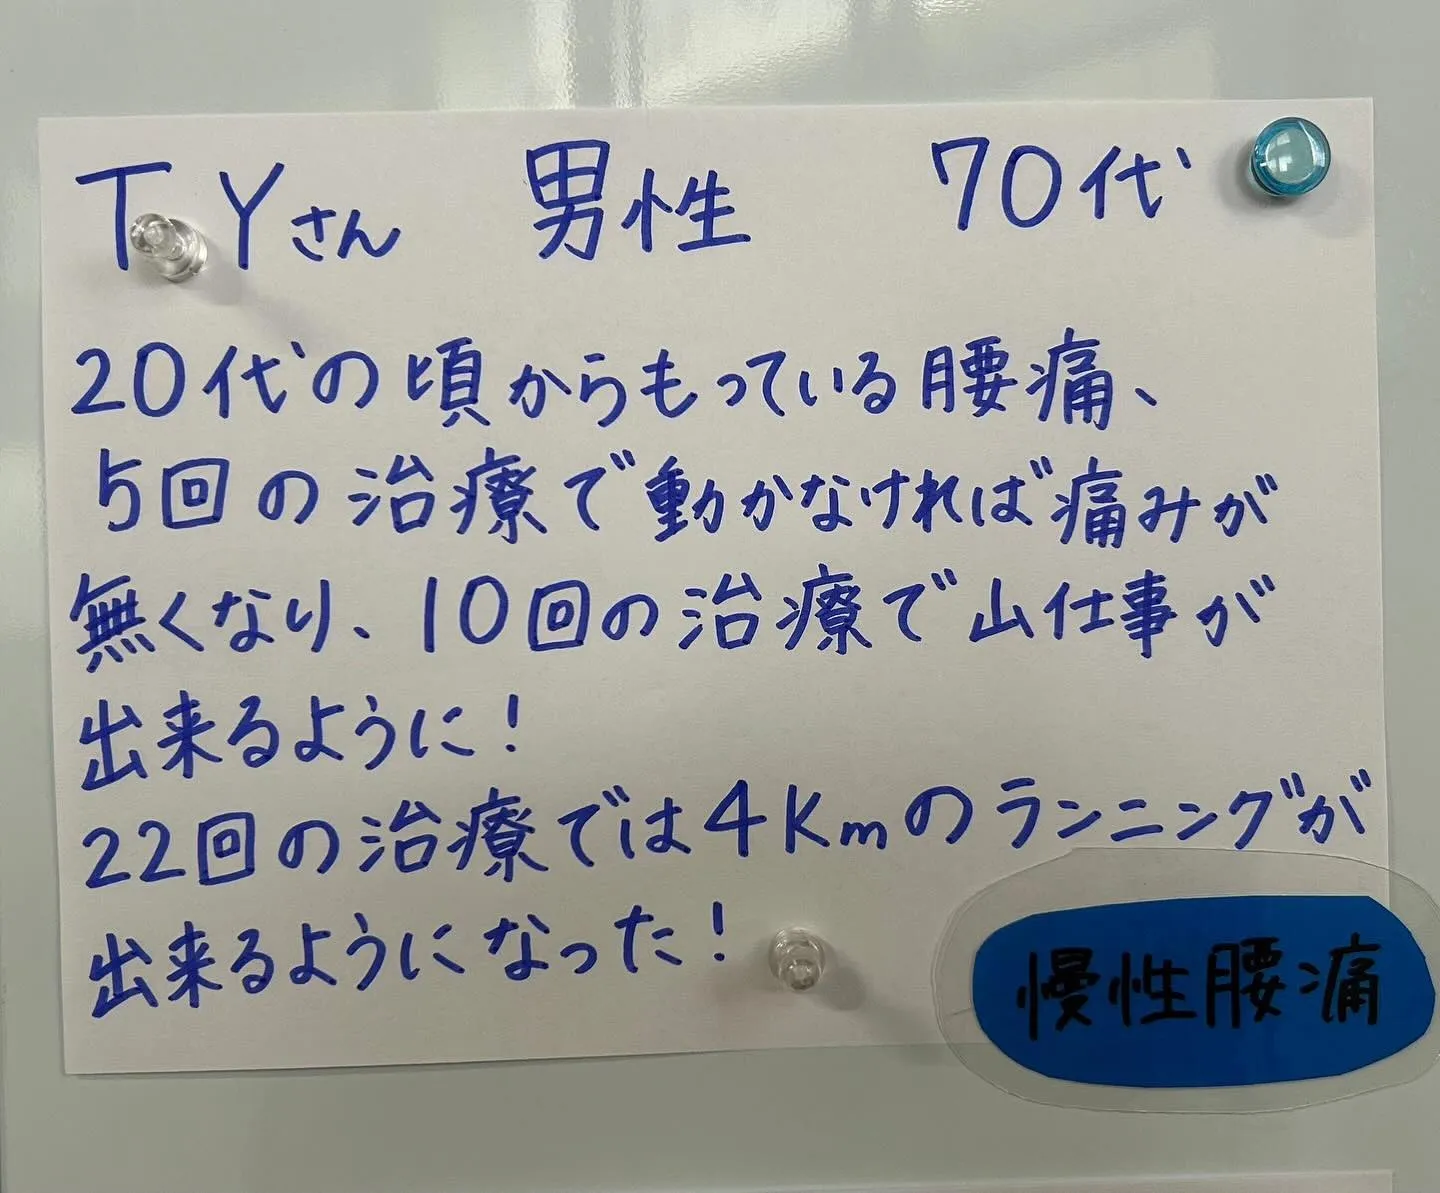 T Yさん 男性 70代
20代の頃からもっている腰痛、
5回の治療で動かなければ痛みが
無くなり、10回の治療で山仕事が
出来るように!
22回の治療では4Kmのランニングが
出来るようになった!
慢性腰痛